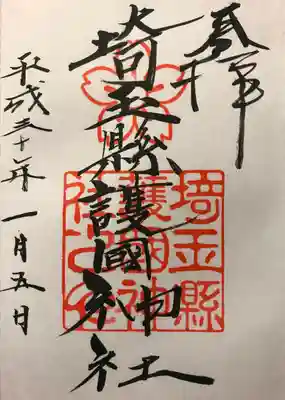 奉拝
埼玉縣護國神社
平成三十年 一月五日
埼玉縣
護國神
社之印